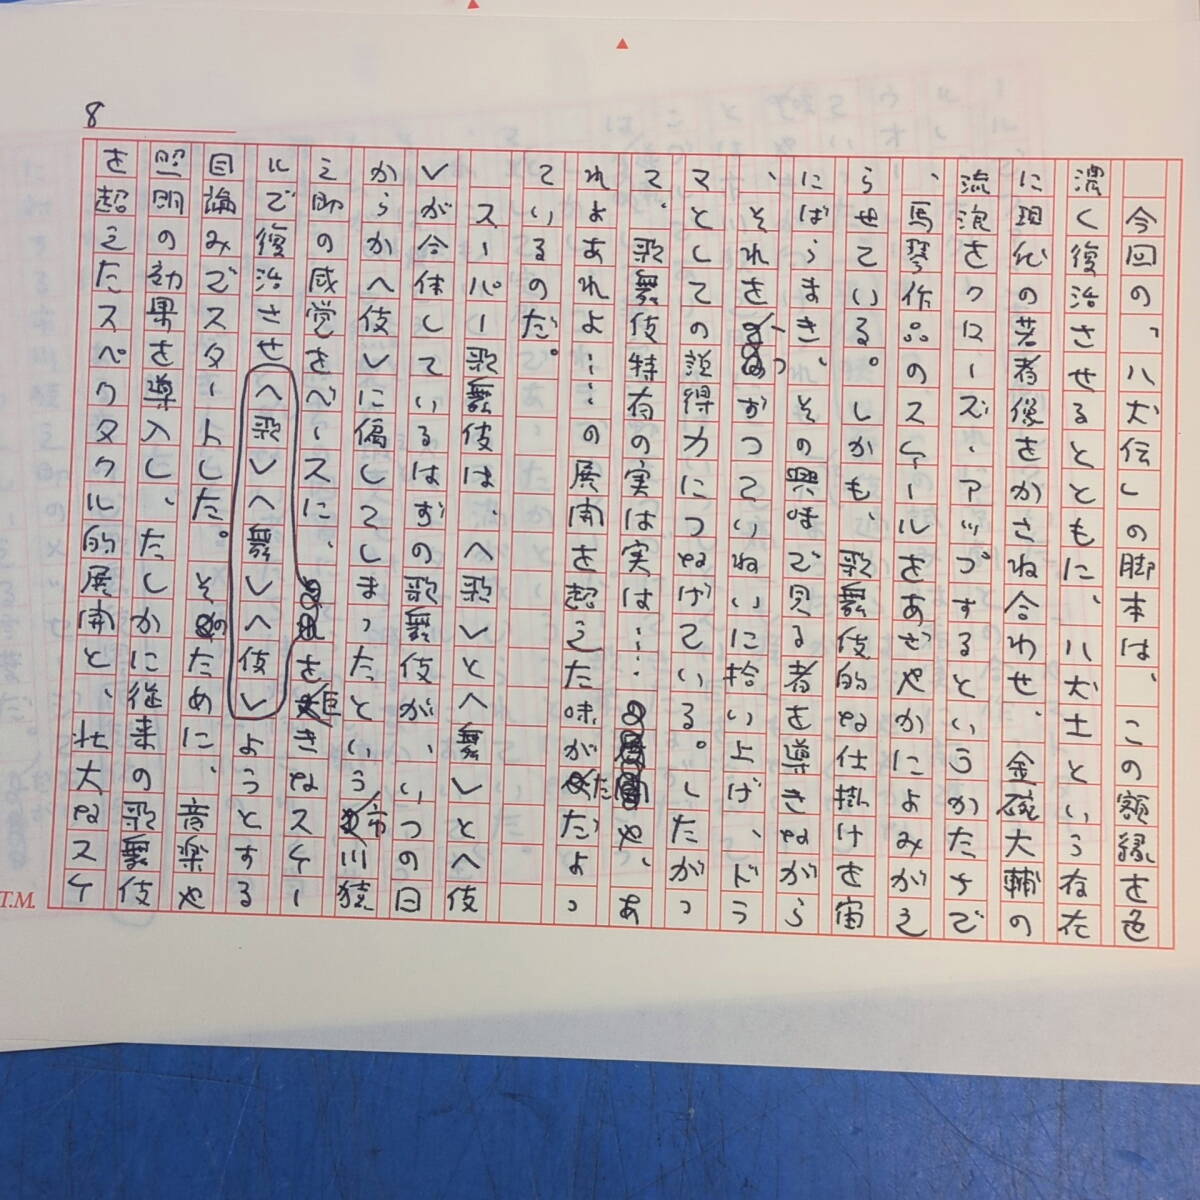 8
今回の、八犬伝」の脚本は、この額縁を色
濃く復活させるとともに、八犬士という存在
に現代の若者像をかさね合わせ、金碗大輔の
流浪をクローズ・アップするというかたちで
、馬琴作品のスケールをあざやかによみがえ
らせている。しかも、歌舞伎的な仕掛けを宙
にばらまき、その興味で見る者を導きながら
、それを一つずつていねいに拾い上げ、ドラ
マとしての説得力につなげている。したがっ
て、歌舞伎特有の実は実は……や、あ
れよあれよ……の展開を超えた味がただよっ
ているのだ。
スーパー歌舞伎は、へ歌レとへ舞レとへ伎
レが合体しているはずの歌舞伎が、いつの日
からかへ伎レに偏してしまったという市川猿
之助の感覚をベースに、を大きなスケー
ルで復活させへ歌レへ舞レへ伎レようとする
目論みでスタートした。そのために、音楽や
照明の効果を導入し、たしかに従来の歌舞伎
を超えたスペクタクル的展開と、壮大なスケ
T.M.